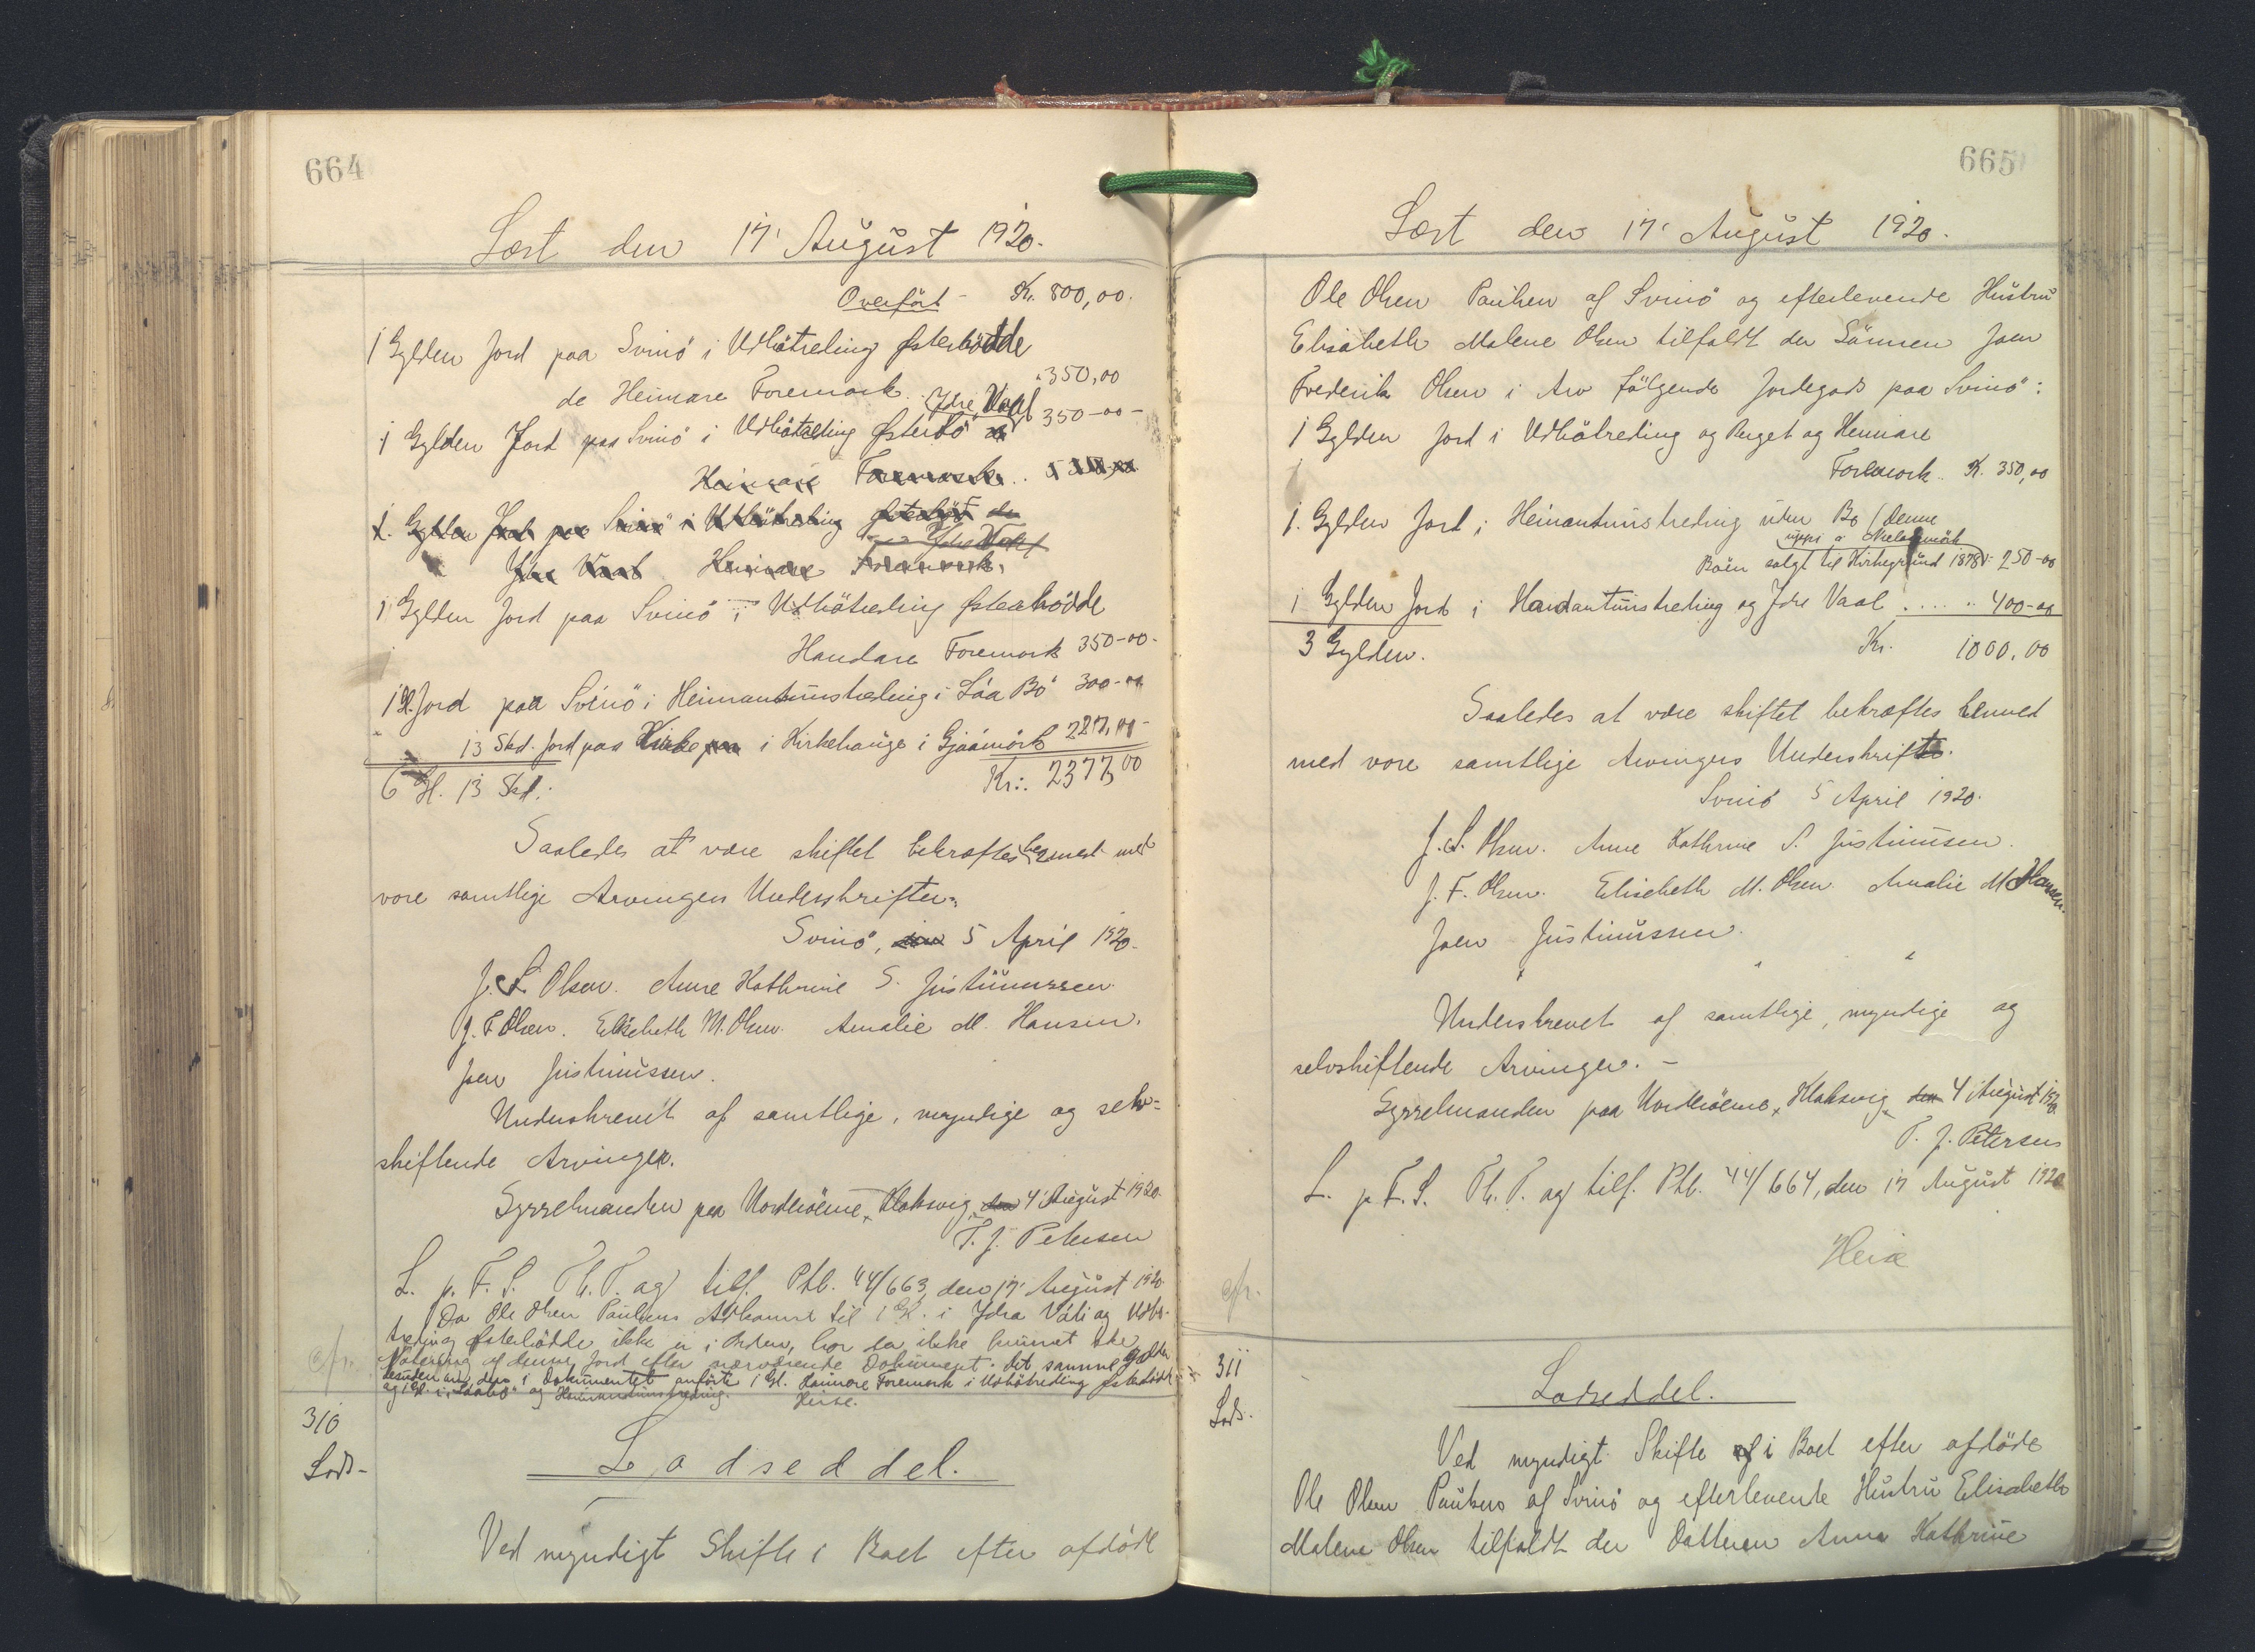 664
Læst den 17' August 1920.
Overført - Kr. 800,00.
1 Gylden Jord paa Svinö i Udbötreding Østerbödde
de Heimare Foremork. " 350,00
Ydre Vaal
1 Gylden Jord paa Svinö i Udbötreding Østerbö 350-00-
Heimare Foremork..
1. Gylden Jord paa Svinö i Udbötreding
Ydre Vaal
Ydre Vaal Heimare Foremork.
1 Gylden Jord paa Svinö i Udbötreding Østerbödde
Handare Foremork 350-00-
1 Gl. Jord paa Svinö i Heimantunstreding i Láa Bö 300-00
13 Skd. Jord paa i Kirkehauge i Gjáamörk 227,00-
6 Gl. 13 Skd. Kr.: 2377,00
Saaledes at være skiftet bekræftes hermed med
vore samtlige Arvingers Underskrifter.
Svinö, den 5 April 1920.
J. S. Olsen. Anne Kathrine S. Justinussen.
J. F. Olsen. Elisebeth M. Olsen. Amalie M. Hansen.
Joen Justinussen.
Underskrevet af samtlige, myndige og selv=
skiftende Arvinger.
Sysselmanden paa Norderöerne, Klaksvig, den 4' August 1920.
T. J. Petersen
L. p. F. S. Th. T. og tilf. Ptb. 44/663, den 17' August 1920.
Da Ole Olsen Paulsens Adkomst til 1 Gl. i Ydra Váli og Udbö-
treding Østerbödde ikke er i Orden, har der ikke kunnet ske
Notering af denne Jord efter nærværende Dokument. Det samme gælder
desuden den i Dokumentet anförte 1 Gl. Heimare Foremork i Udbötreding Østerbödde
og 1 Gl. i "Láabö" og Heimantunstreding. Heise.
cfr.
310
Lods-
Lodseddel.
Ved myndigt Skifte i Boet efter afdöde
665
Læst den 17' August 1920.
Ole Olsen Paulsen af Svinö og efterlevende Hustru
Elisabeth Malene Olsen tilfaldt der Sönnen Joen
Frederik Olsen i Arv fölgende Jordegods paa Svinö:
1 Gylden Jord i Udbötreding og Berget og Heimare
Foremork.. Kr. 350,00
1. Gylden Jord i Heimantunstreding uden Bö (denne
uppi á Nielsamörk
Böen solgt til Kirkegrund 1878): 250-00
1 Gylden Jord i Handantunstreding og Ydre Vaal ..... " 400-00
3 Gylden. Kr. 1000,00
Saaledes at være skiftet bekræftes hermed
med vore samtlige Arvingers Underskrifter.
Svinö 5 April 1920.
J. S. Olsen. Anne Kathrine S. Justinussen.
J. F. Olsen. Elisebeth M. Olsen. Amalie M. Hansen.
Joen Justinussen.
Underskrevet af samtlige, myndige og
selvskiftende Arvinger. -
Sysselmanden paa Norderöerne, Klaksvig, den 4 August 1920.
T. J. Petersen
L. p. F. S. Th. T. og tilf. Ptb. 44/664, den 17 August 1920
Heise
cfr.
311
Lods.
Lodseddel.
Ved myndigt Skifte i Boet efter afdöde
Ole Olsen Paulsens af Svinö og efterlevende Hustru Elisabeth
Malene Olsen tilfaldt der Datteren Anna Kathrine